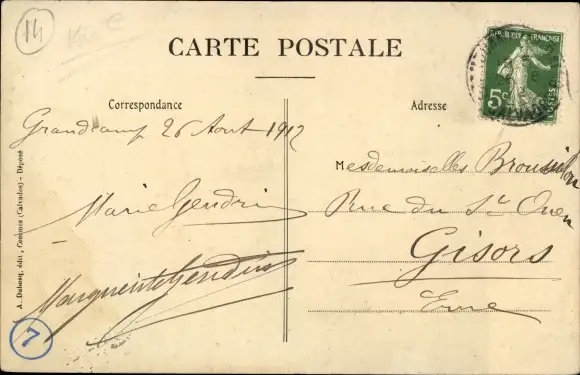 14
CARTE POSTALE
Correspondance
Adresse
REPUBLIQUE FRANÇAISE
5c
POSTES
Grandcamp 26 Aout 1912
Mesdemoiselles Broussillon
Marie Gendrin
Rue du St Ouen
Gisors
Marguerite Gendrin
Eure
A. Dubosq, édit., (Calvados) - Déposé
7